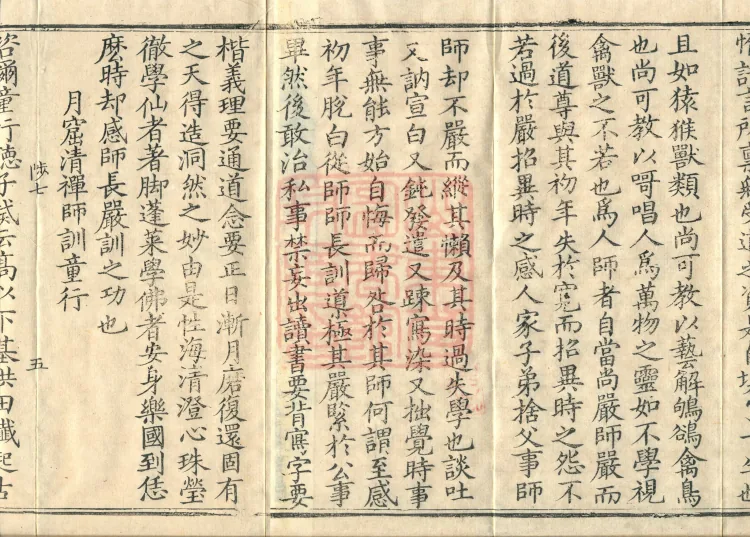 且如猿猴獸類也尚可教以藝解鴝鵒禽鳥
也尚可教以哥唱人爲萬物之靈如不學視
禽獸之不若也爲人師者自當尚嚴師嚴而
後道尊與其初年失於寬而招異時之怨不
若過於嚴招異時之感人家子弟捨父事師
師却不嚴而縱其懶及其時過失學也談吐
又訥宣白又鈍發遣又踈寫染又拙覺時事
事無能方始自悔而歸咎於其師何謂至感
初年脫白從師師長訓導極其嚴緊於公事
畢然後敢治私事禁妄出讀書要背寫字要
楷義理要通道念要正日漸月磨復還固有
之天得造洞然之妙由是性海清澄心珠瑩
徹學仙者著脚蓬萊學佛者安身樂國到恁
麽時却感師長嚴訓之功也
月窟清禪師訓童行
陟七 五
咨爾童行聽予誡云高以下基洪由纖起古